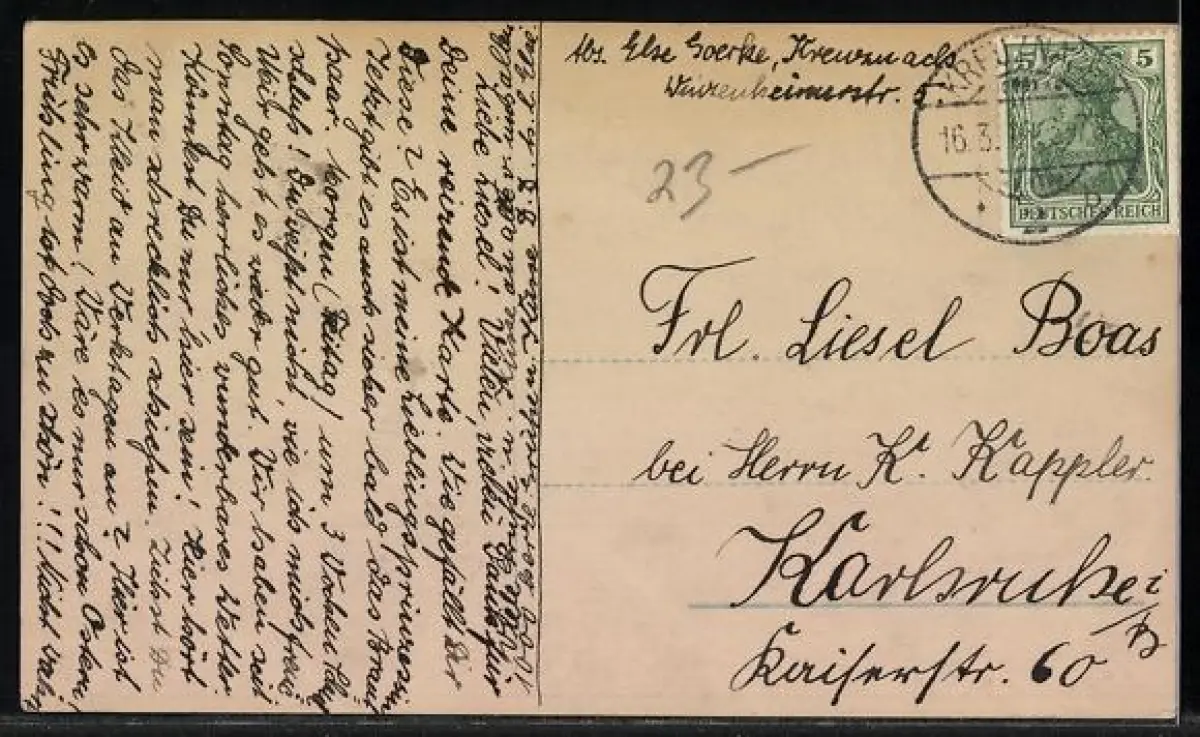 Liebe Liesel! Vielen, vielen Dank für
Deine reizende Karte. Wie gefällt Dir
diese? Es ist meine Lieblingsprinzessin
Jetzt gibt es auch sicher bald das Braut
paar. Morgen (Freitag) um 3 Uhr
schluß! Du weißt nicht, wie ich mich freue
Mir geht es wieder gut. Wir haben seit
Sonntag herrliches, wunderbares Wetter.
Könntest Du nur hier sein! Hier hört
man schrecklich schießen. Ziehst Du
das Kleid an Verktagen an? Hier ist
es sehr warm! Wäre es nur schon Ostern!
Frühling ist doch zu schön!!! Nicht wahr
Abs. Else Goerke, Kreuznach
Winzenheimerstr. 5
KREUZNACH
16.3.
5 5
DEUTSCHES REICH
23-
Frl. Liesel Boas
bei Herrn K. Kappler.
Karlsruhe i/B
Kaiserstr. 60